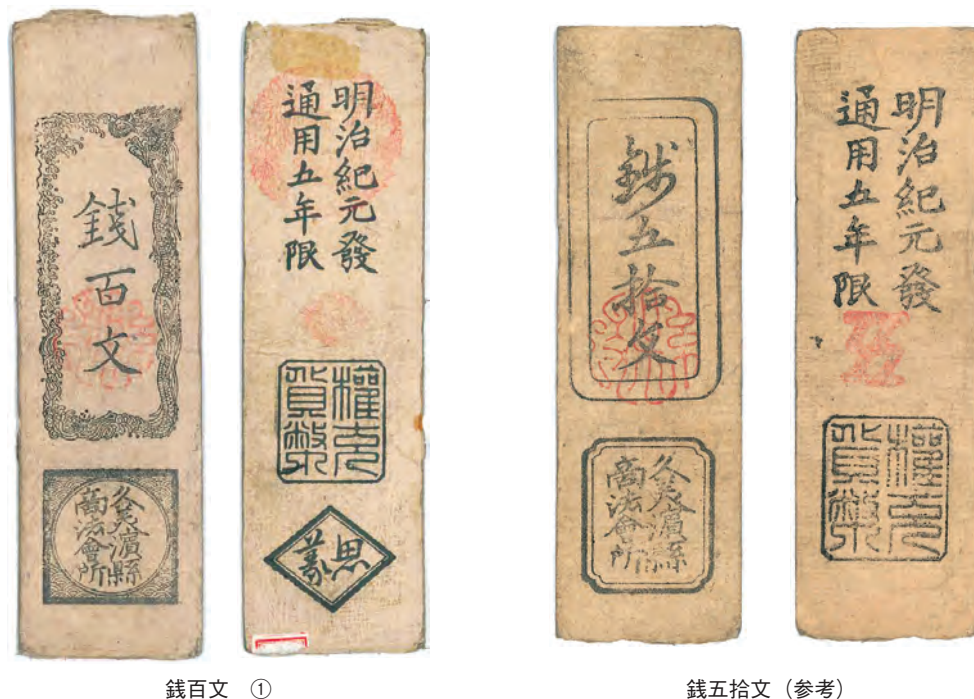 錢百文
久美濱縣
商法會所
明治紀元發
通用五年限
權充
貨幣
思義
錢五拾文
久美濱縣
商法會所
明治紀元發
通用五年限
權充
貨幣
銭百文　①
銭五拾文（参考）